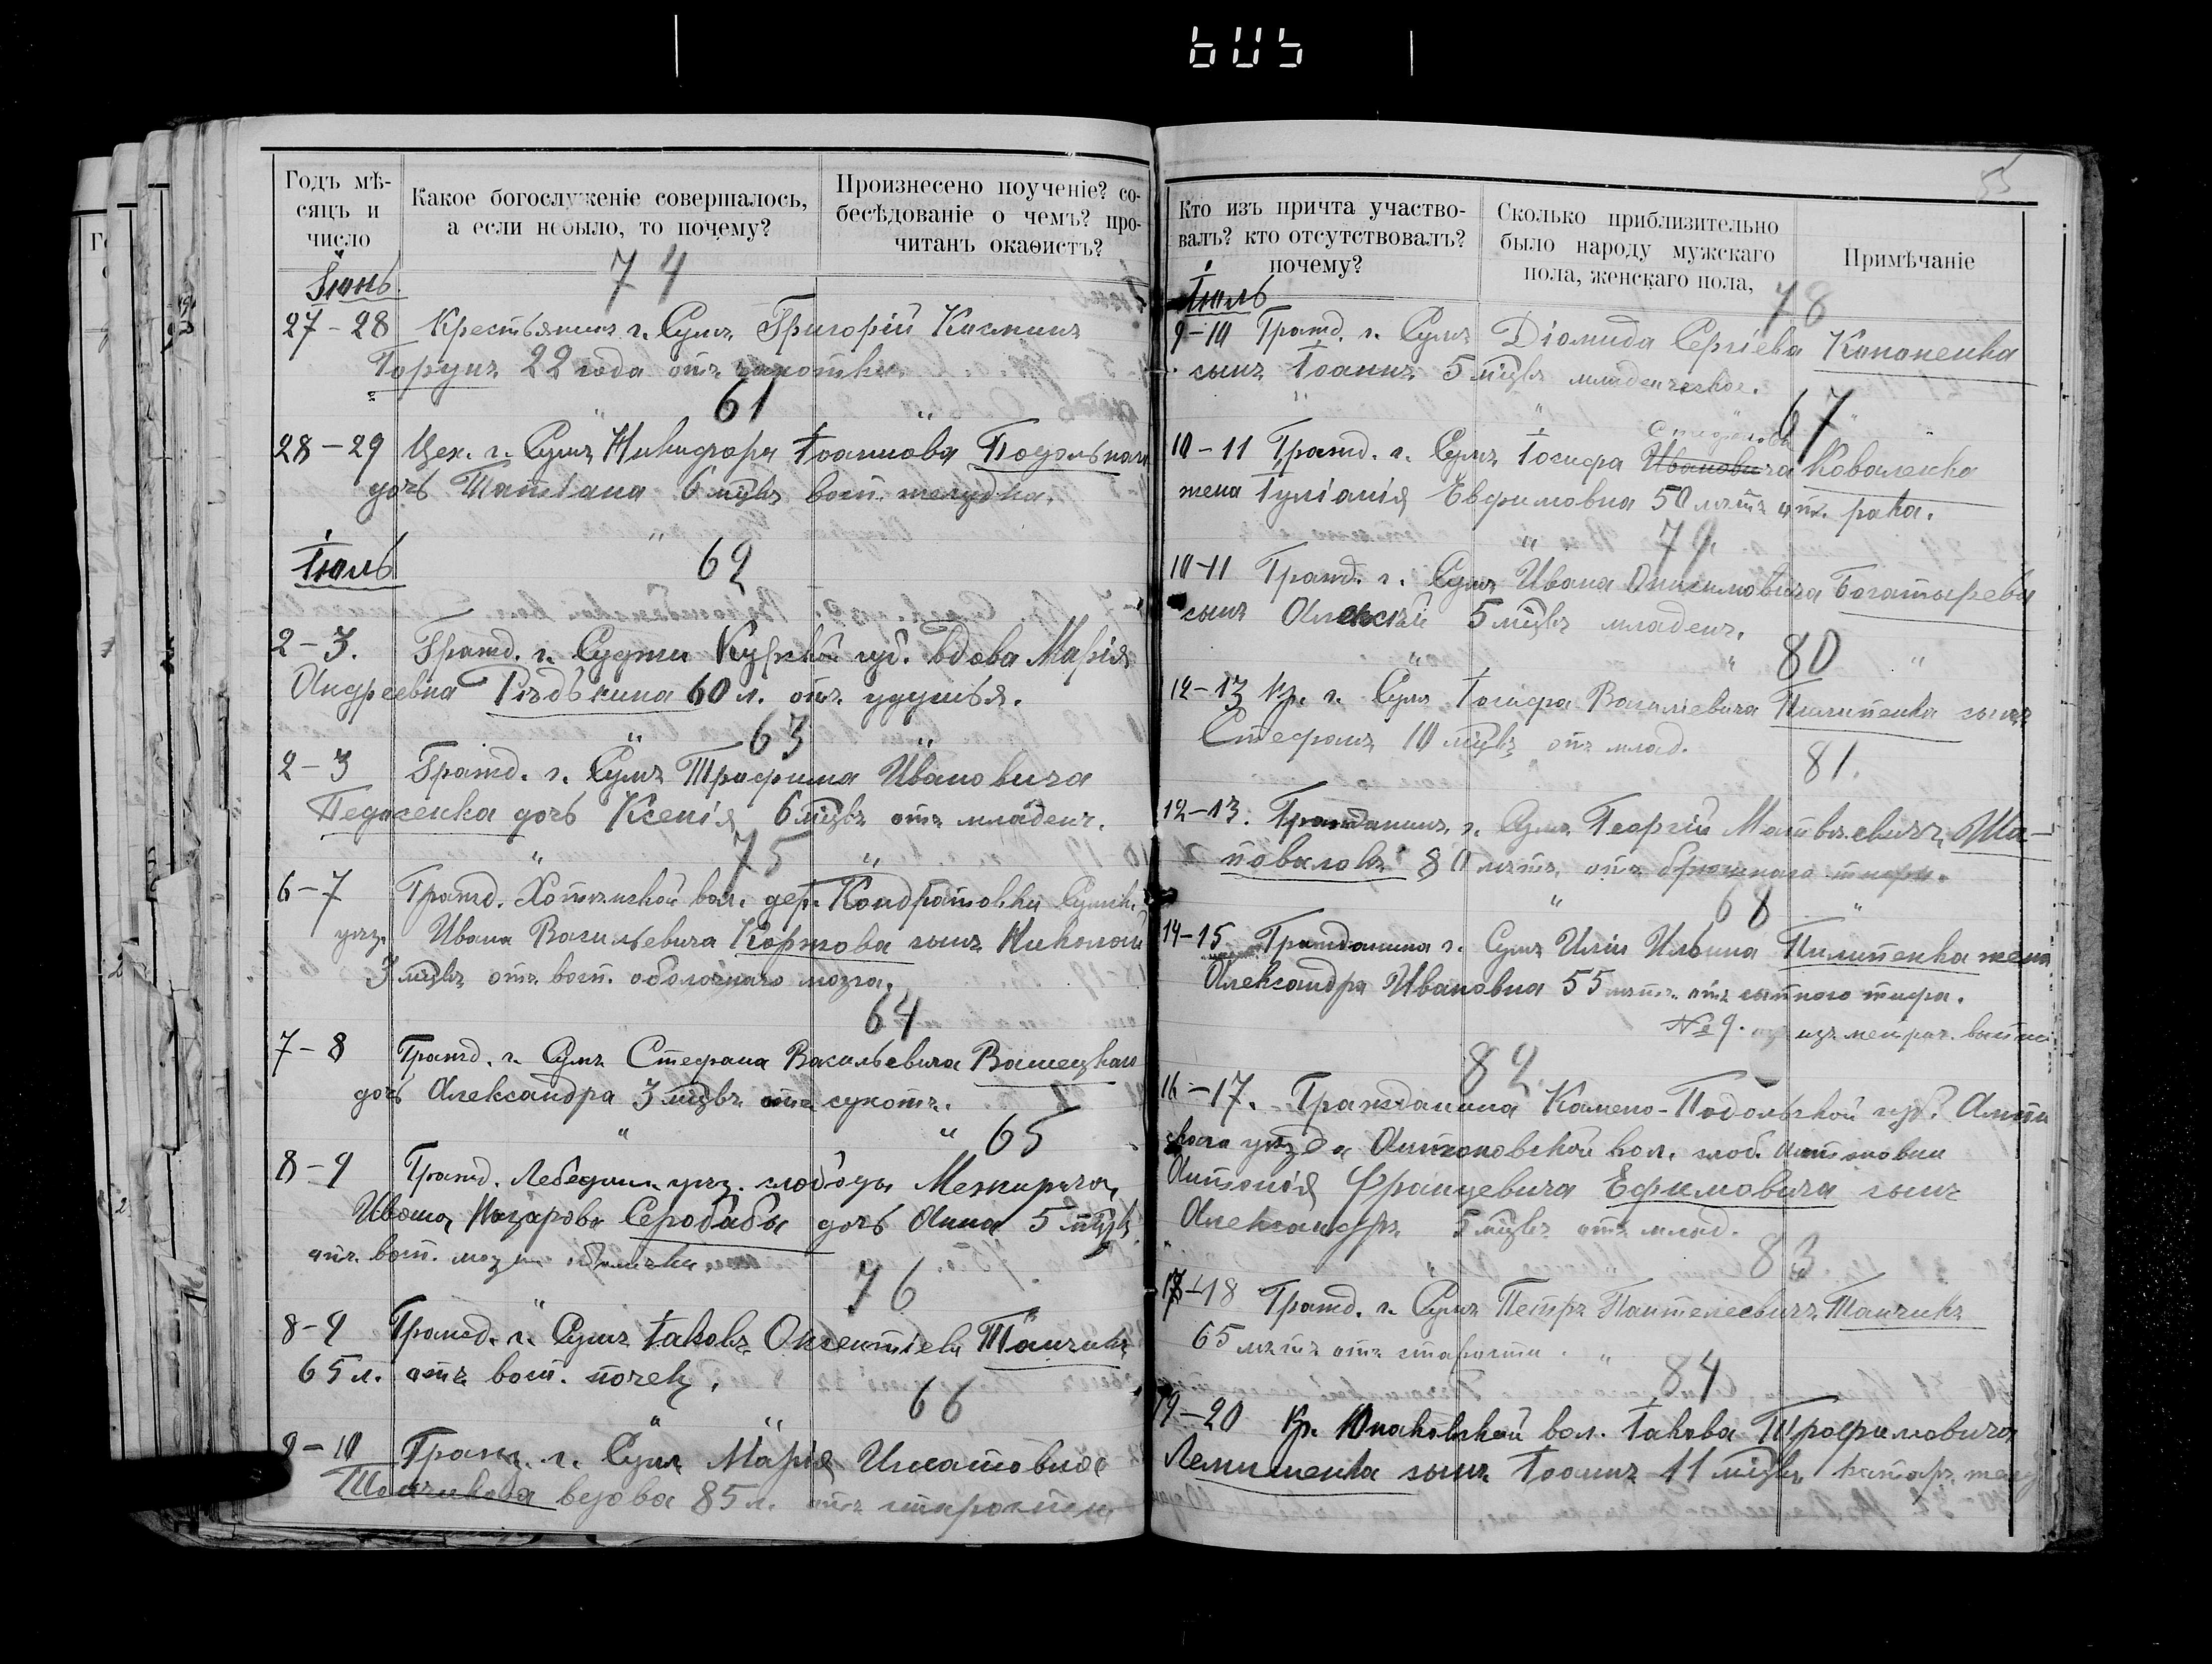 Годъ мѣ-
сяцъ и
число
Какое богослуженіе совершалось,
а если небыло, то почему?
Произнесено поученіе? со-
бесѣдованіе о чемъ? про-
читанъ окаѳистъ?
Іюнь.
74
27-28 Крестьянинъ г. Сумъ Григорій Косминъ
Горунъ 22 года отъ чахотки.
61
28-29 Цех. г. Сумъ Никифора Іоаннова
дочь Татіана 6 мцвъ восп. желудка.
Іюль
62
2-3. Гражд. г. Суджи Курской губ. вдова Марія
Андреевна Рѣдькина 60 л. отъ удушья.
63
2-3 Гражд. г. Сумъ Трофима Ивановича
дочь Ксенія 6 мцвъ отъ младенч.
75
6-7 Гражд. Хотѣнской вол. дер. Кондратовки Сумск.
уѣз. Ивана Васильевича Коржова сынъ Николай
3 мцвъ отъ восп. оболочнаго мозга.
64
7-8 Гражд. г. Сумъ Стефана Васильевича
дочь Александра 3 мцвъ отъ сухотъ.
65
8-9 Гражд. Лебедин. уѣз. слободы Межирича,
Ивана Назарова Серобабы дочь Анна 5 мцвъ
отъ восп. мозг.
76
8-9 Гражд. г. Сумъ Іаковъ Танчикъ
65 л. отъ восп. почекъ.
66
9-10 Гражд. г. Сумъ Марія Игнатовна
Танчикова вдова 85 л. отъ старости
55
Кто изъ причта участво-
валъ? кто отсутствовалъ?
почему?
Сколько приблизительно
было народу мужскаго
пола, женскаго пола,
Примѣчаніе
Іюль
78
9-10 Гражд. г. Сумъ Діомида Сергіева Кононенка
сынъ Іоаннъ 5 мцвъ младенческое.
67
Стефанов
10-11 Гражд. г. Сумъ Іосифа Ивановича Коваленка
жена Іуліанія Евфимовна 50 лѣтъ отъ рака.
79.
10-11 Гражд. г. Сумъ Ивана Онисимовича Богатырева
сынъ Алексѣй 5 мцвъ младенч.
80
12-13 Кр. г. Сумъ Іосифа Василіевича сынъ
Стефанъ 10 мцвъ отъ млад.
81.
12-13. Гражданинъ г. Сумъ Георгій Матвѣевичъ Ша-
поваловъ 80 лѣтъ, отъ брюшного тифа.
68
14-15 Гражданина г. Сумъ Иліи Ильина Пилипенка жена
Александра Ивановна 55 лѣтъ отъ сыпного тифа.
№ 9.
82
16-17. Гражданина Камено-Подольской губ.
уѣзда Антоновской вол. слоб. Антоновки
Антонія Францевича Ефимовича сынъ
Александръ 5 мцвъ отъ млад.
83
17-18 Гражд. г. Сумъ Петръ Пантелеевичъ Танчикъ
65 лѣтъ отъ старости.
84
19-20 Кр. Юнаковской вол. Іакова Трофимовича
сынъ Іоаннъ 11 мцвъ катар. желуд